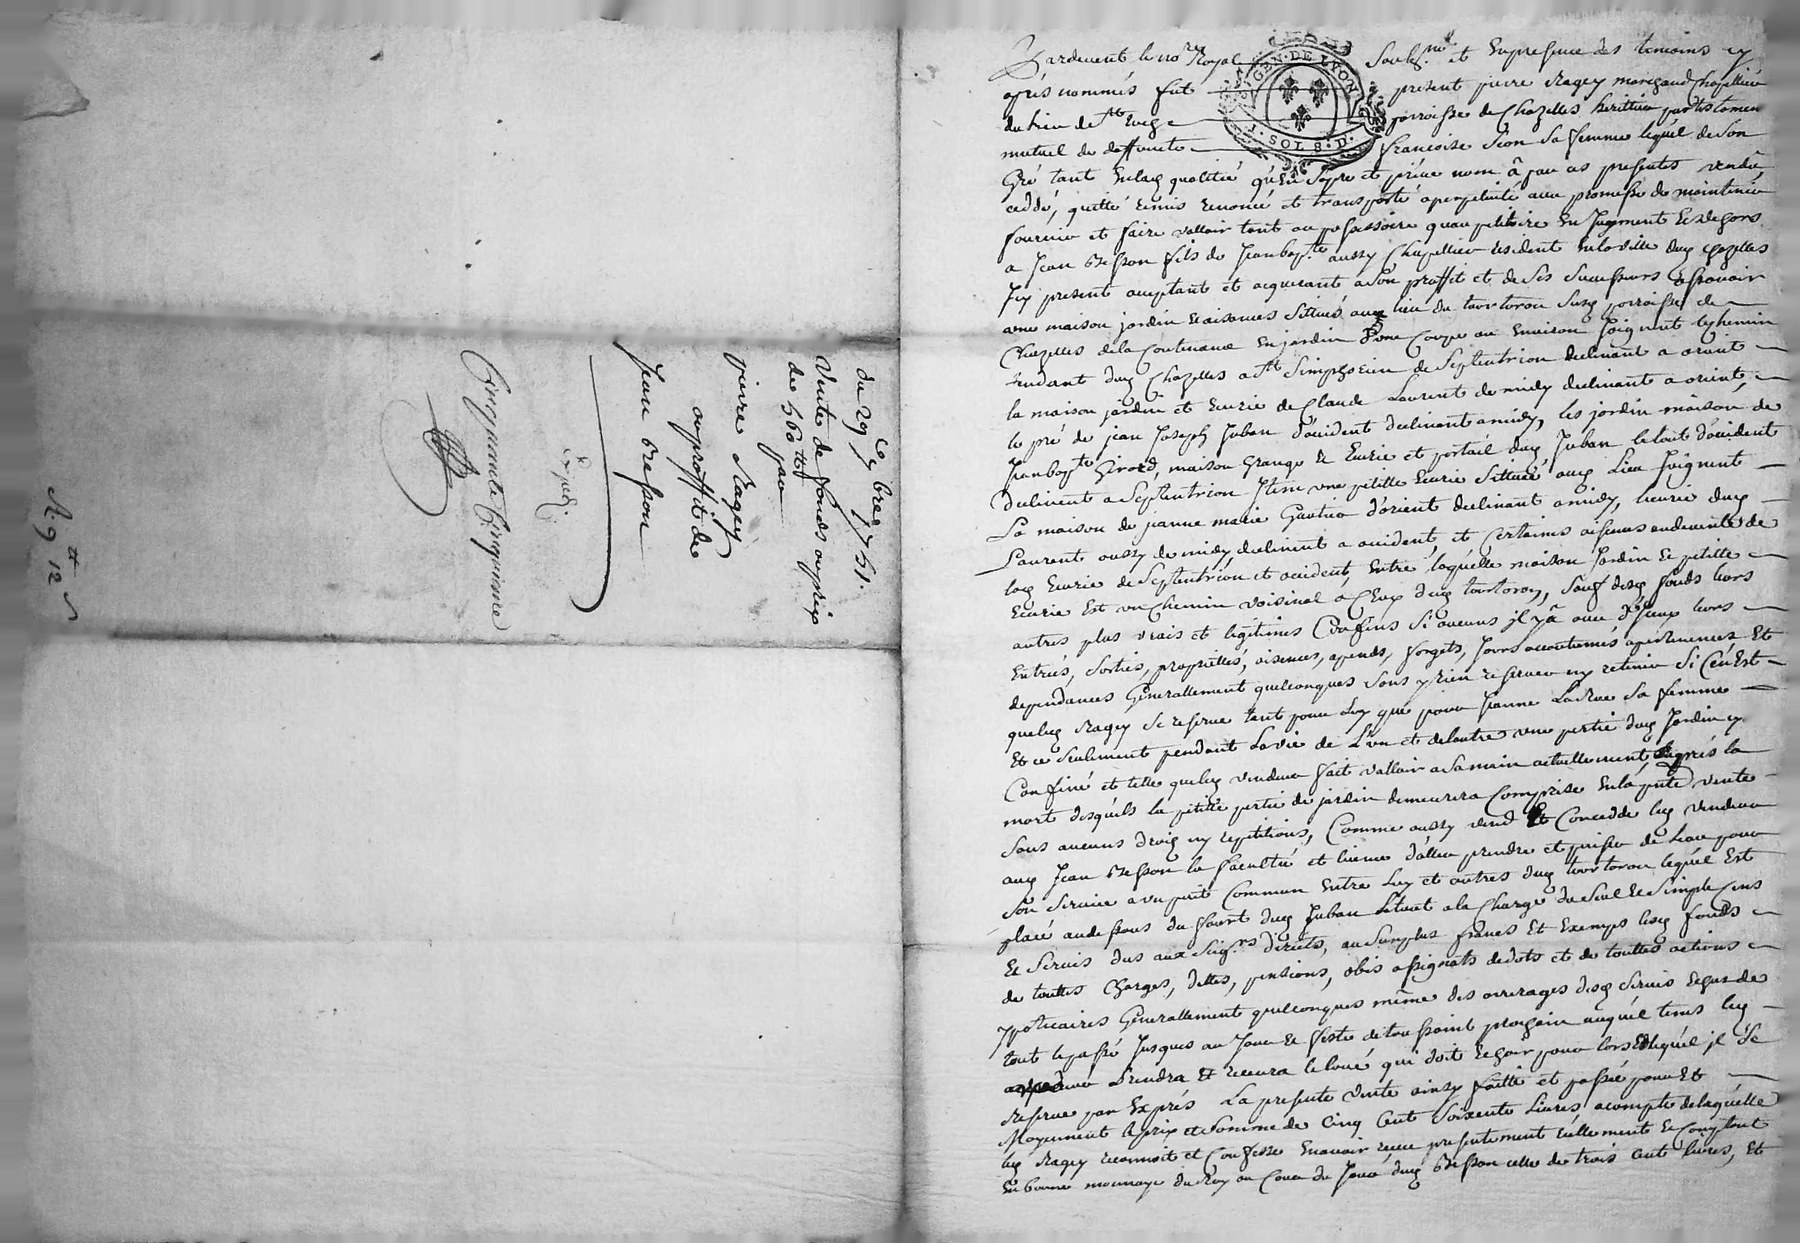 du 29 7bre 1751.
Vente de fonds au prix
de 560 tt
par
pierre Ragey
au proffit de
Jean Besson
Expedi.
Cinquante Cinquieme
R 9 tt 12 s
GEN. DE LYON
1. SOL 8. D.
Pardevant le nore Royal soubs.né et en presence des temoins cy
après nommés fut present pierre Ragey marchand chapellier
du lieu de paroisse de Chazelles heritier par testamen
mutuel de deffuncte francoise Sion sa femme lequel de son
Gré tant en lad. qualitté qu'en son pre et privé nom à par ces presentes vendu
ceddé, quitté remis renoncé et transporté a perpetuité avec promesse de maintenir
fournir et faire valloir tant au possessoire qu'au petitoire en Jugement et dehors
a Jean Besson fils de Jean bapte. aussy chapellier resident en la ville dud. chazelles
Icy present acceptant et acquerant a son proffit et de ses successeurs a sçavoir
une maison jardin et aisances sittués aud. lieu du tourtorou susd. parroisse de
Chazelles de la Contenance en jardin d'une Coupe ou environ Joignant le chemin
tendant dud. Chazelles a St Simphorien de Septentrion declinant a orient
la maison jardin et Ecurie de Claude Laurent de midy declinant a orient,
le pré de jean Joseph Juban d'occident declinant a midy, les jardin maison de
Jean bapte Girord, maison Grange et Ecurie et portail dud. Juban le tout d'occident
declinent a Septentrion Item une petitte Ecurie sittuée aud. Lieu Joignent
La maison de jeanne marie Gautier d'orient declinant a midy, l'ecurie dud.
Laurent aussy de midy declinent a occident, et certaines aisences au devent de
lad. Ecurie de Septentrion et occident, Entre laquelle maison Jardin et petitte
Ecurie est un Chemin voisinal a Ceux dud. tourtorou, sauf desd. fonds leurs
autres plus vrais et legitimes Confins si aucuns il y à avec d'Iceux leurs
Entrées, sorties, proprietés, aisences, apends, forgets, Jours accoutumés apartenences Et
dependances Generallement quelconques sans y rien reserver ny retenir si Ce n'Est
que led. Ragey se reserve tant pour Luy que pour Jeanne LaRue sa femme
Et ce seulement pendant la vie de L'un et de l'autre une partie dud. Jardin cy
Confiné et telle que led. vendeur fait valloir a sa main actuellement, après la
mort desquels la petitte partie de jardin demeurera Comprise En la pnte vente
sans aucuns droig ny repetitions, Comme aussy vend Et Concedde led. vendeur
aud. Jean Besson la faculté et licence d'aller prendre et puiser de L'eau pour
son service a un puit Commun entre Luy et autres dud. tourtorou lequel Est
placé au dessous du four dud. Juban Etant a la Charge du seul Et simple Cens
Et Servis dus aux seigrs. directs, au surplus francs Et Exemps lesd. fonds
de touttes Charges, dettes, pensions, obis assignats de dots et de touttes actions
ypotecaires Generallement quelconques même des arrerages desd. servis Echus de
tout le passé Jusques au Jour et feste de toussaint prochain auquel tems led.
prendra Et recevra le loué qui doit Echoir pour lors Et lequel il se
reserve par Exprés La presente vente ainsy faitte et passée pour Et
Moyennent le prix et somme de Cinq Cent soixante Livres, a compte de laquelle
led. Ragey reconnoit et Confesse en avoir receu presentement reellement et Comptant
En bonne monnoye du Roy au Cours du Jour dud. Besson celle de trois Cent livres, Et